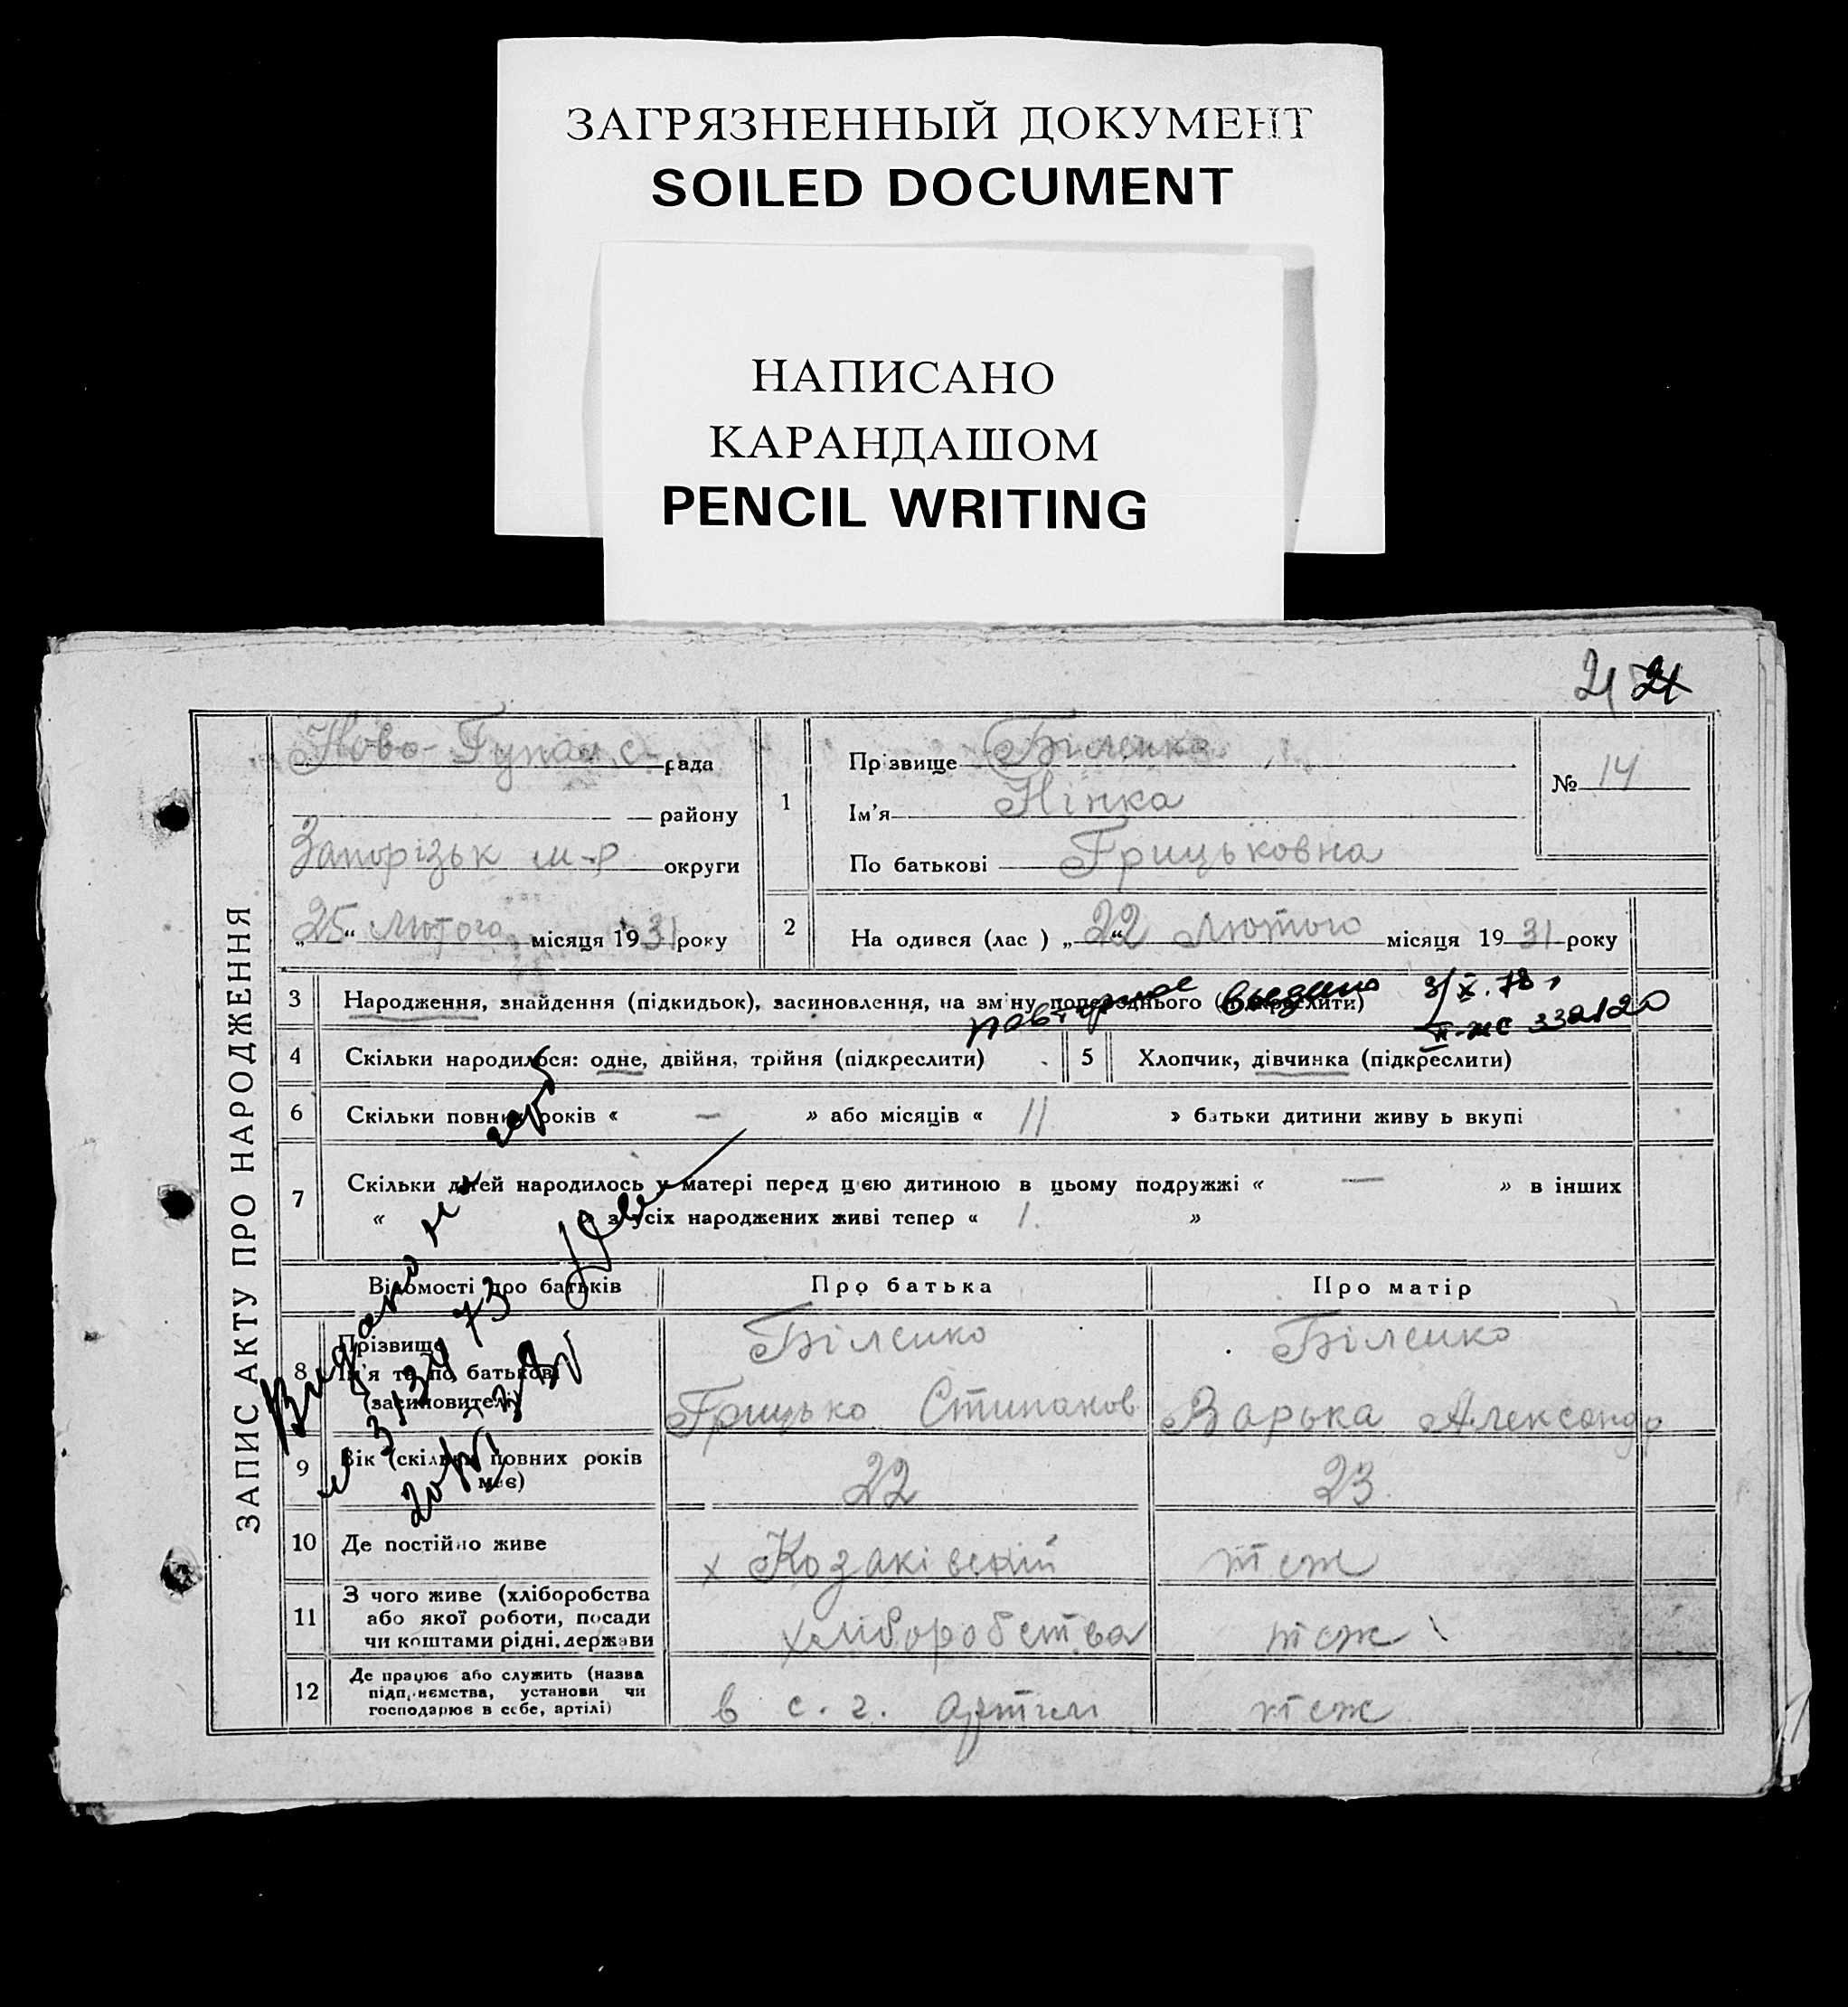 ЗАГРЯЗНЕННЫЙ ДОКУМЕНТ
SOILED DOCUMENT
НАПИСАНО
КАРАНДАШОМ
PENCIL WRITING
21 21
ЗАПИС АКТУ ПРО НАРОДЖЕННЯ
Ново-Гупал с- рада
району
Запорізьк м-р округи
„25“ Лютого місяця 1931 року
1
Прізвище Біленко
Ім'я Нінка
По батькові Грицьковна
№ 14
2
На одився (лас ) „22“ Лютого місяця 1931 року
3 Народження, знайдення (підкидьок), засиновлення, на зм ну попереднього (підкреслити)
повторное выдано 3/X. 78 г
II-ЖС 332120
4 Скільки народилося: одне, двійня, трійня (підкреслити)
5 Хлопчик, дівчинка (підкреслити)
6 Скільки повних років « — » або місяців « 11 » батьки дитини живу ь вкупі
7 Скільки дітей народилось у матері перед цією дитиною в цьому подружжі « — » в інших
« » з усіх народжених живі тепер « 1. »
Відомості про батьків
Про батька
Про матір
8 Прізвище
Ім'я та по батькові
(засиновителі)
Біленко
Грицько Стипанов
Біленко
Варька Александр
9 Вік (скільки повних років
має)
22
23
10 Де постійно живе
х Козаківский
теж
11 З чого живе (хліборобства
або якої роботи, посади
чи коштами рідні, держави
хліборобства
теж
12 Де працює або служить (назва
підприємства, установи чи
господарює в себе, артілі)
в с. г. артили
теж